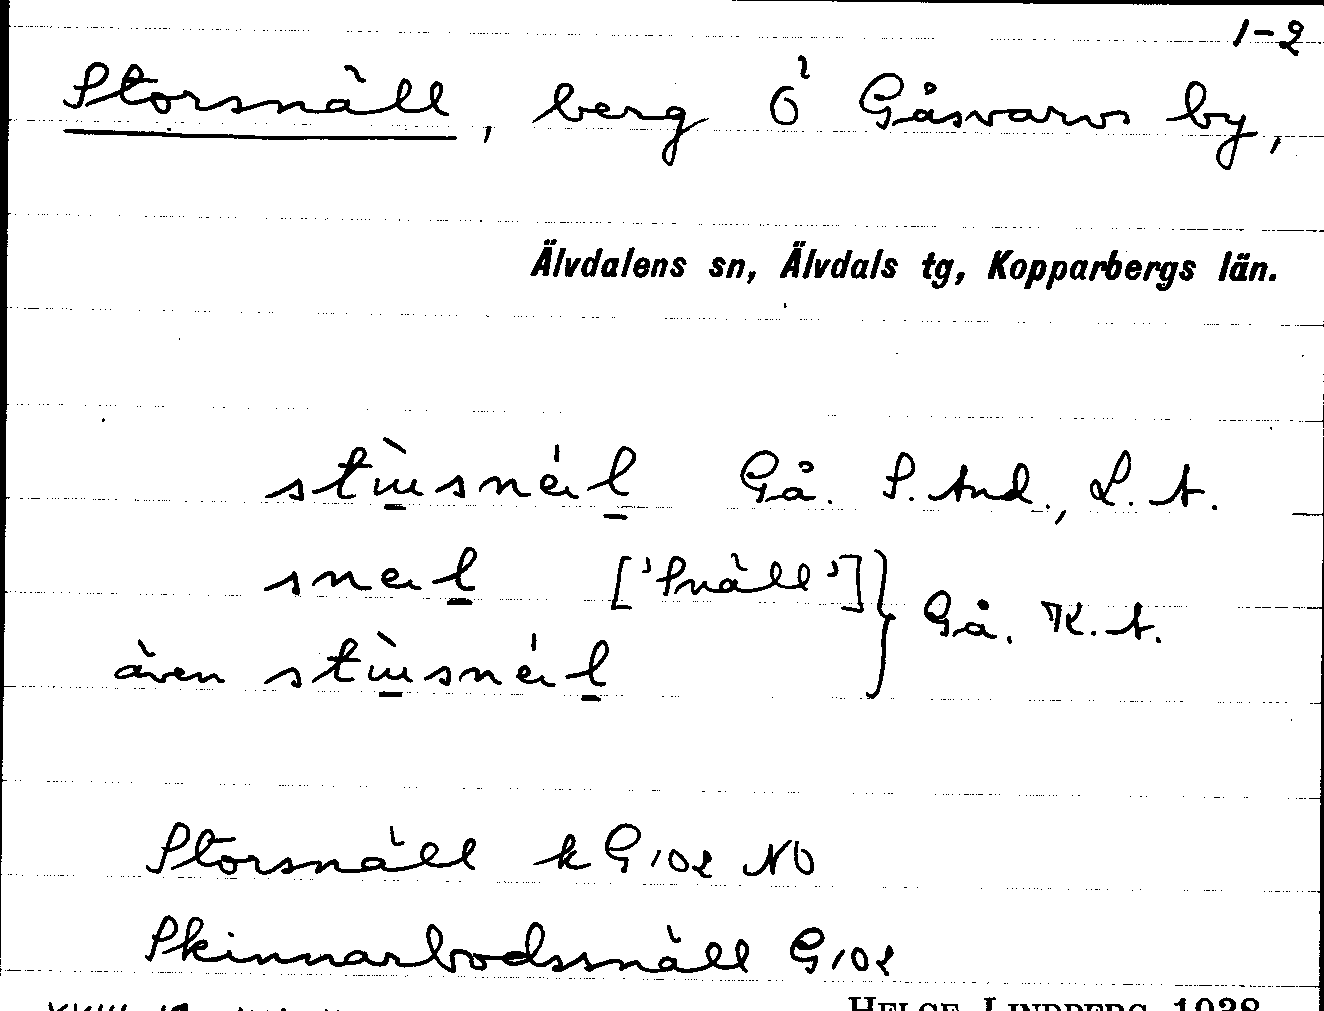 1-2
Storsnäll, berg Ö Gåsvarvs by,
Älvdalens sn, Älvdals tg, Kopparbergs län.
Gå. S. And., L. A.
['Snäll'] Gå. K. A.
även
Storsnäll k G 102 NÖ
Skinnarbodssnäll G 102
HELGE LINDBERG 1938